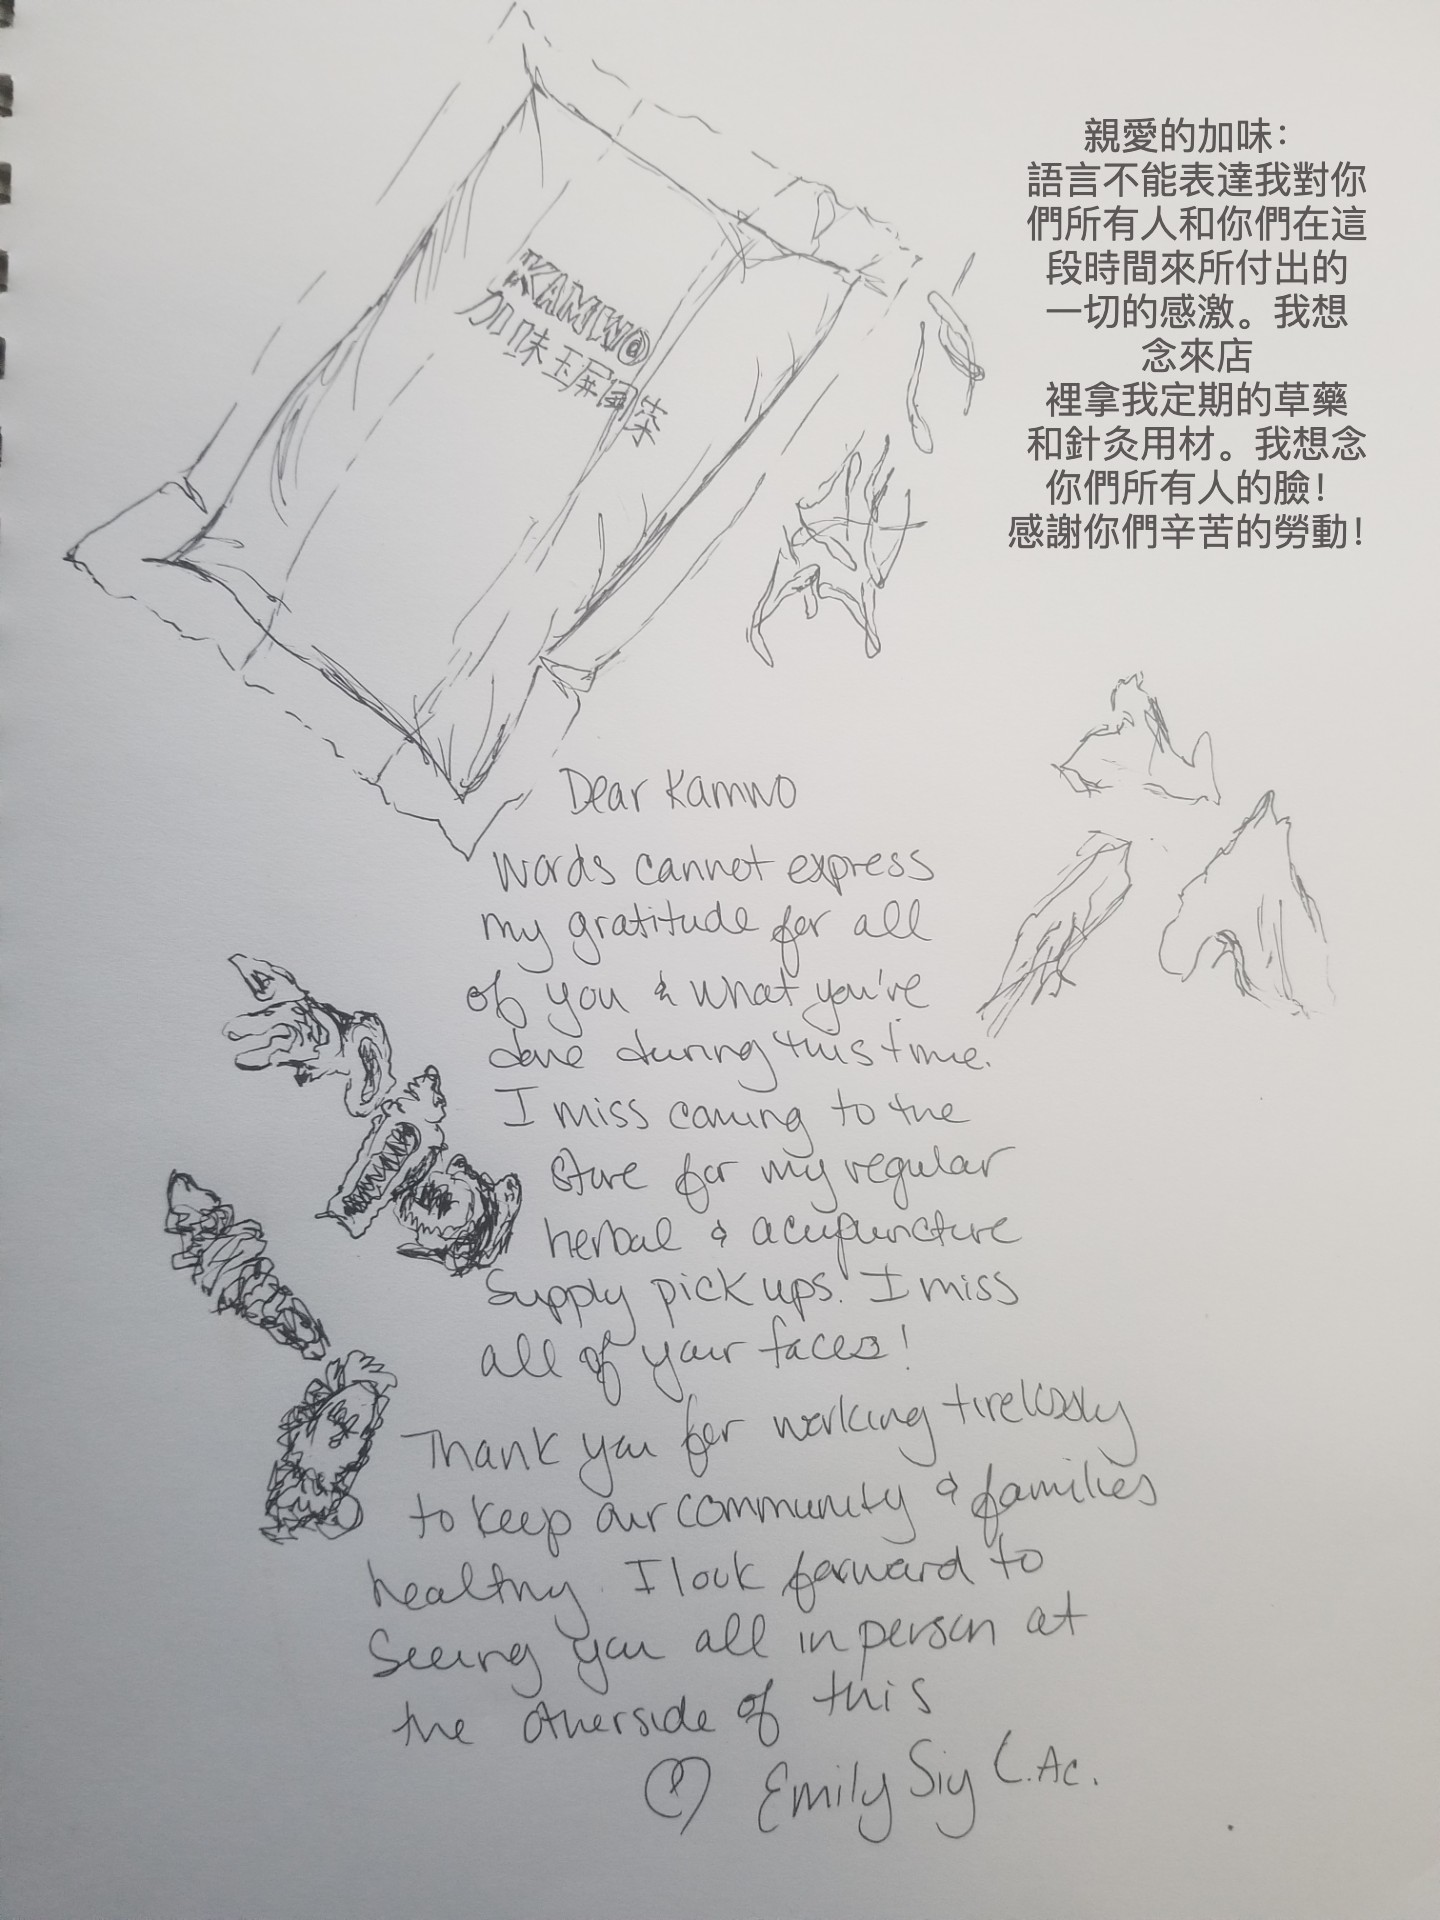 KAMWO
加味玉屏風茶
親愛的加味：
語言不能表達我對你
們所有人和你們在這
段時間來所付出的
一切的感激。我想
念來店
裡拿我定期的草藥
和針灸用材。我想念
你們所有人的臉！
感謝你們辛苦的勞動！
Dear Kamwo
Words cannot express
my gratitude for all
of you & what you've
done during this time.
I miss coming to the
store for my regular
herbal & acupuncture
supply pick ups. I miss
all of your faces!
Thank you for working tirelessly
to keep our community & families
healthy. I look forward to
seeing you all in person at
the otherside of this
♡ Emily Siy L.Ac.